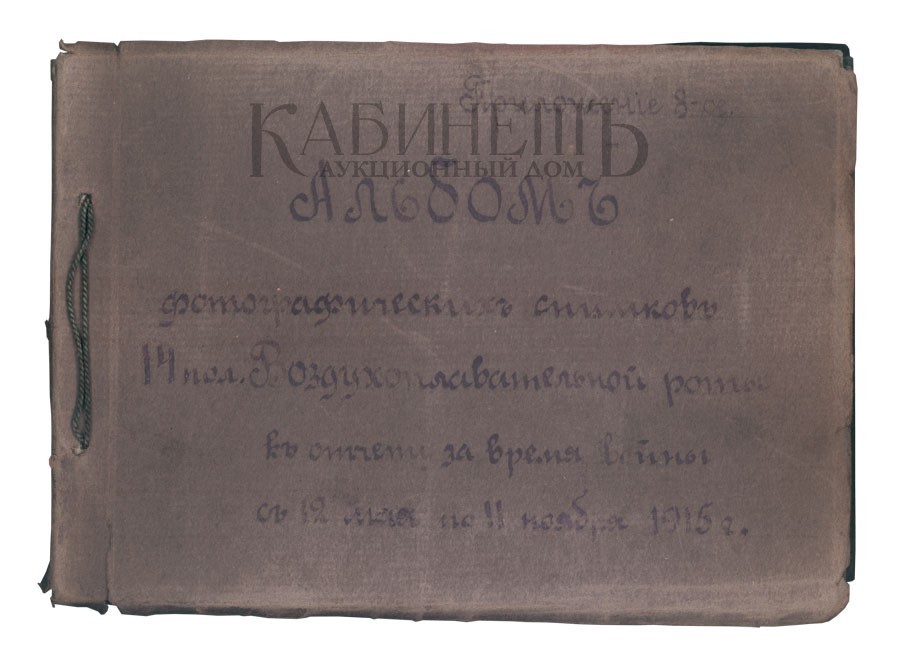 Приложеніе 8-ое.
КАБИНЕТЪ
АУКЦИОННЫЙ ДОМ
Альбомъ
фотографическихъ снимковъ
14 пол. Воздухоплавательной роты
къ отчету за время войны
съ 12 мая по 11 ноября 1915 г.